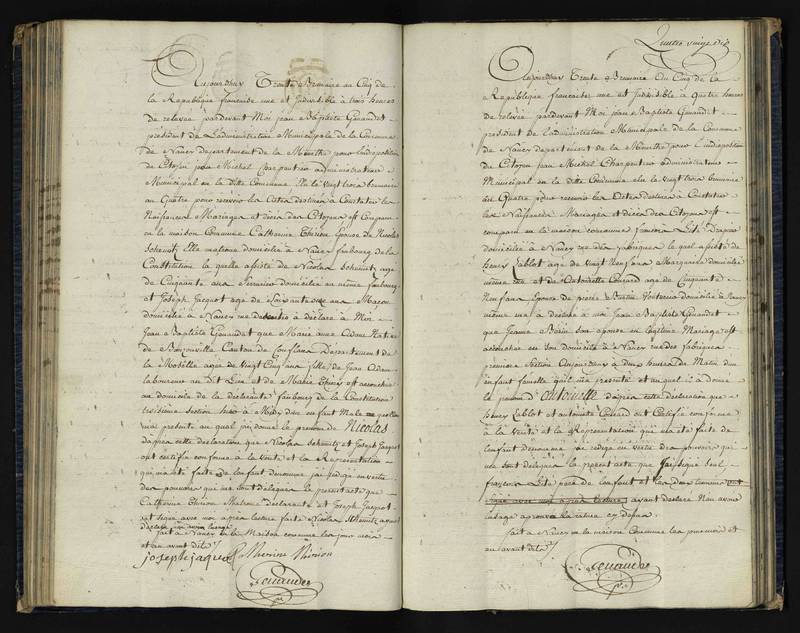 Aujourdhuy Trente Brumaire an Cinq de
la Republique francaise une et Indivisible à trois heures
de relevée pardevant Moi jean Baptiste Genaudet
président de L'administration Municipale de la Commune
de Nancy département de la Meurthe pour l'indisposition
du Citoyen jean Michel Charpentier administrateur
Municipal en la ditte Commune Elu le vingt trois brumaire
an Quatre pour recevoir les Actes destinés à Constater les
Naissances Mariages et décés des Citoyens est Comparu
en la maison Commune Catherine Thirion Epouse de Nicolas
Schemitz Elle matrone domiciliée à Nancy faubourg de la
Constitution la quelle assisté de Nicolas Schemitz agé
de Cinquante ans Serrurier domicilié au même faubourg
et Joseph Jacquot agé de Soixante ans Macon
domicilié à Nancy rue a déclaré à Moi
Jean Baptiste Genaudet que Marie Adam Native
de Canton de Conflans Département de
la Moselle agée de Vingt Cinq ans fille de Jean Adam
laboureur au Dit Lieu et de Marie est accouchée
au domicile de la déclarante faubourg de la Constitution
Section à Midy d'un enfant Male quelle
ma presenté au quel jai donné le prenom de Nicolas
dapres cette declaration que Nicolas Schemitz et Joseph Jacquot
ont certifié conforme à la Verité et la Representation
qui ma été faite de lenfant denommé jai redigé en vertu
des pouvoirs qui me sont délégués le present acte que
Catherine Thirion Matrone declarante et Joseph Jacquot
ont signé avec moi apres lecture faite Nicolas Schemitz ayant
declaré
fait à Nancy en la Maison commune les jour mois
et an avant dits
joseph jaquot Catherine Thirion
Genaudet
Quatre vingt dix
Aujourdhuy Trente Brumaire An Cinq de la
République francaise une et Indivisible à Quatre heures
de relevée pardevant Moi jean Baptiste Genaudet
président de L'administration Municipale de la Commune
de Nancy département de la Meurthe pour l'indisposition
du Citoyen jean Michel Charpentier administrateur
Municipal en la ditte Commune elu le vingt trois brumaire
an Quatre pour recevoir les Actes destinés à Constater
les Naissances Mariages et décés des Citoyens est
comparu en la maison commune francois
domicilié à Nancy rue des fabriques le quel assisté de
Henry Lablot agé de vingt Neuf ans domicilié
même rue et de Antoinette Conrard agé de Cinquante
Neuf ans Epouse de pierre domicilié à Nancy
même rue a déclaré a moi Jean Baptiste Genaudet
que Jeanne son epouse en légitime Mariage est
accouchée en son domicile à Nancy rue des fabriques
premiere Section Aujourdhuy à deux heures de Matin d'un
enfant femelle quil ma presenté et au quel il a donné
le prenom d'Antoinette dapres cette déclaration que
Henry Lablot et antoinette Conrard ont Certifié conforme
à la Verité et la Representation qui ma été faite de
lenfant denommé jai redigé en vertu des pouvoirs qui
me sont délégués le present acte que Jai signé seul
francois pere de lenfant et les deux temoins ont
signé avec moi apres lecture ayant declaré Nen avoir
lusage aprouvé la rature cy dessus
fait à Nancy en la maison Commune les jour mois et
an avant dits
Genaudet